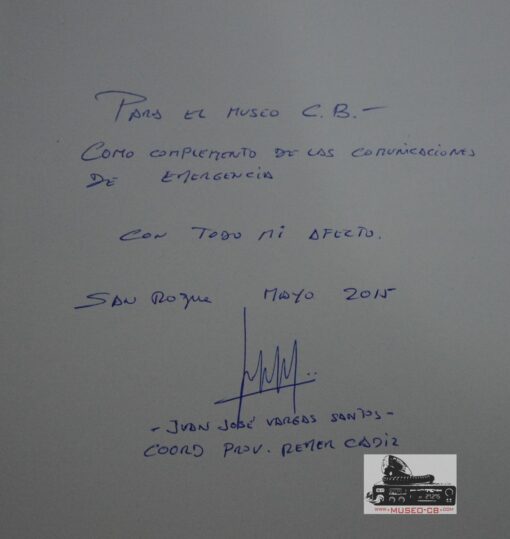 PARA EL MUSEO C.B.-
COMO COMPLEMENTO DE LAS COMUNICACIONES
DE EMERGENCIA
CON TODO MI AFECTO.
SAN ROQUE MAYO 2015
- JUAN JOSÉ VARGAS SANTOS -
COORD PROV. REMER CADIZ
WWW.MUSEO-CB.COM